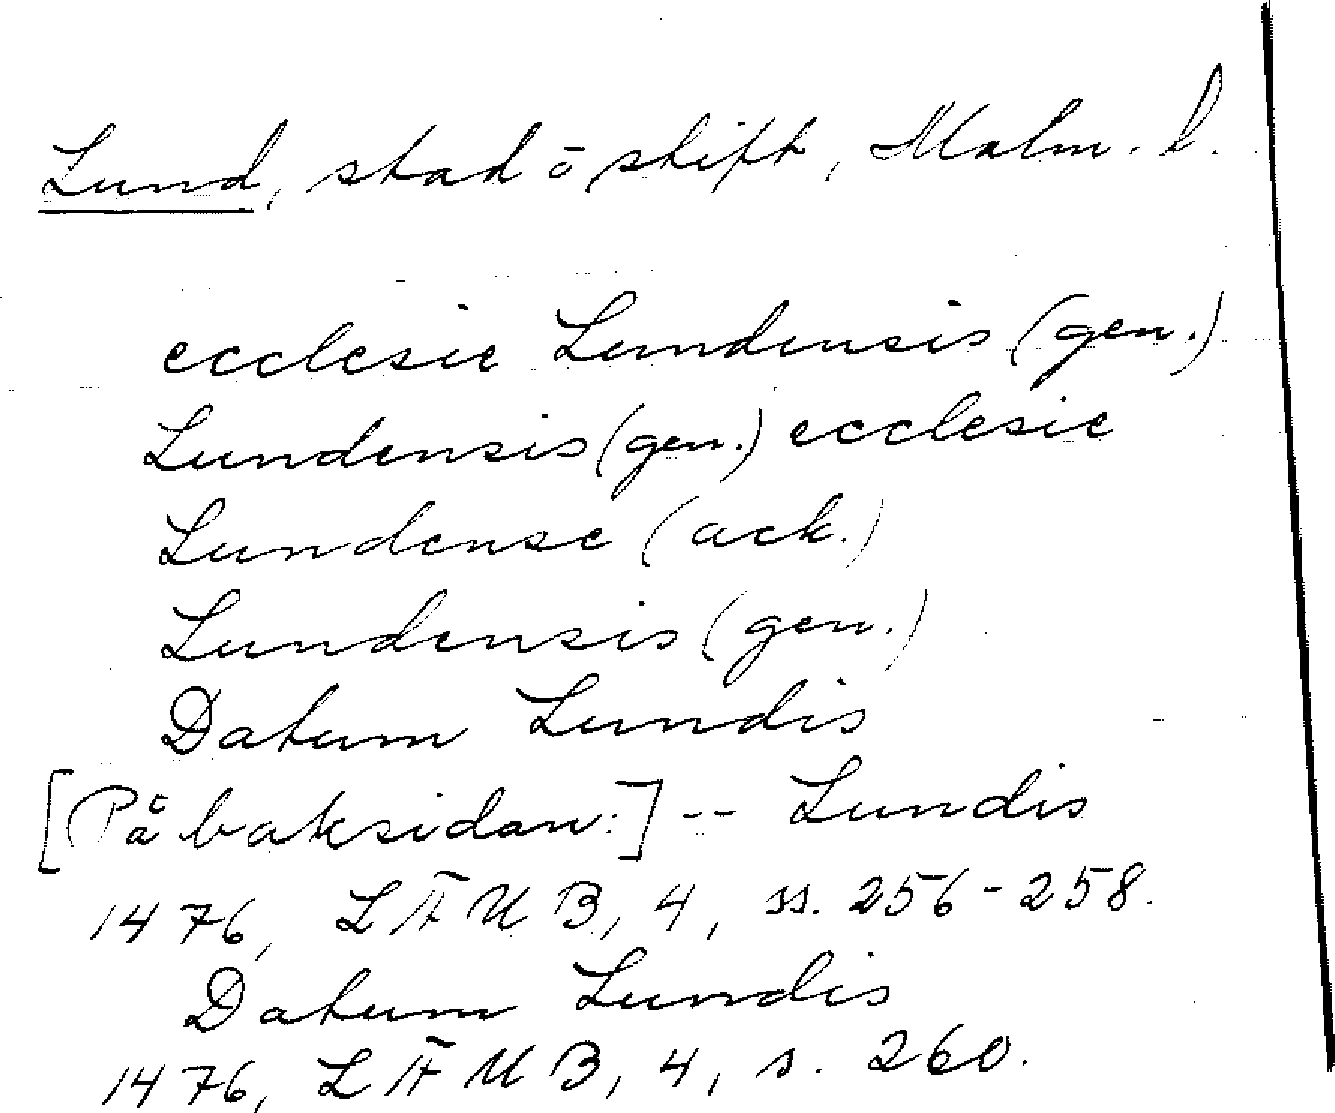 Lund, stad o skift, Malm. l.
ecclesie Lundensis (gen.)
Lundensis (gen.) ecclesie
Lundense (ack.)
Lundensis (gen.)
Datum Lundis
[På baksidan:] -- Lundis
1476, LÄUB, 4, ss. 256-258.
Datum Lundis
1476, LÄUB, 4, s. 260.